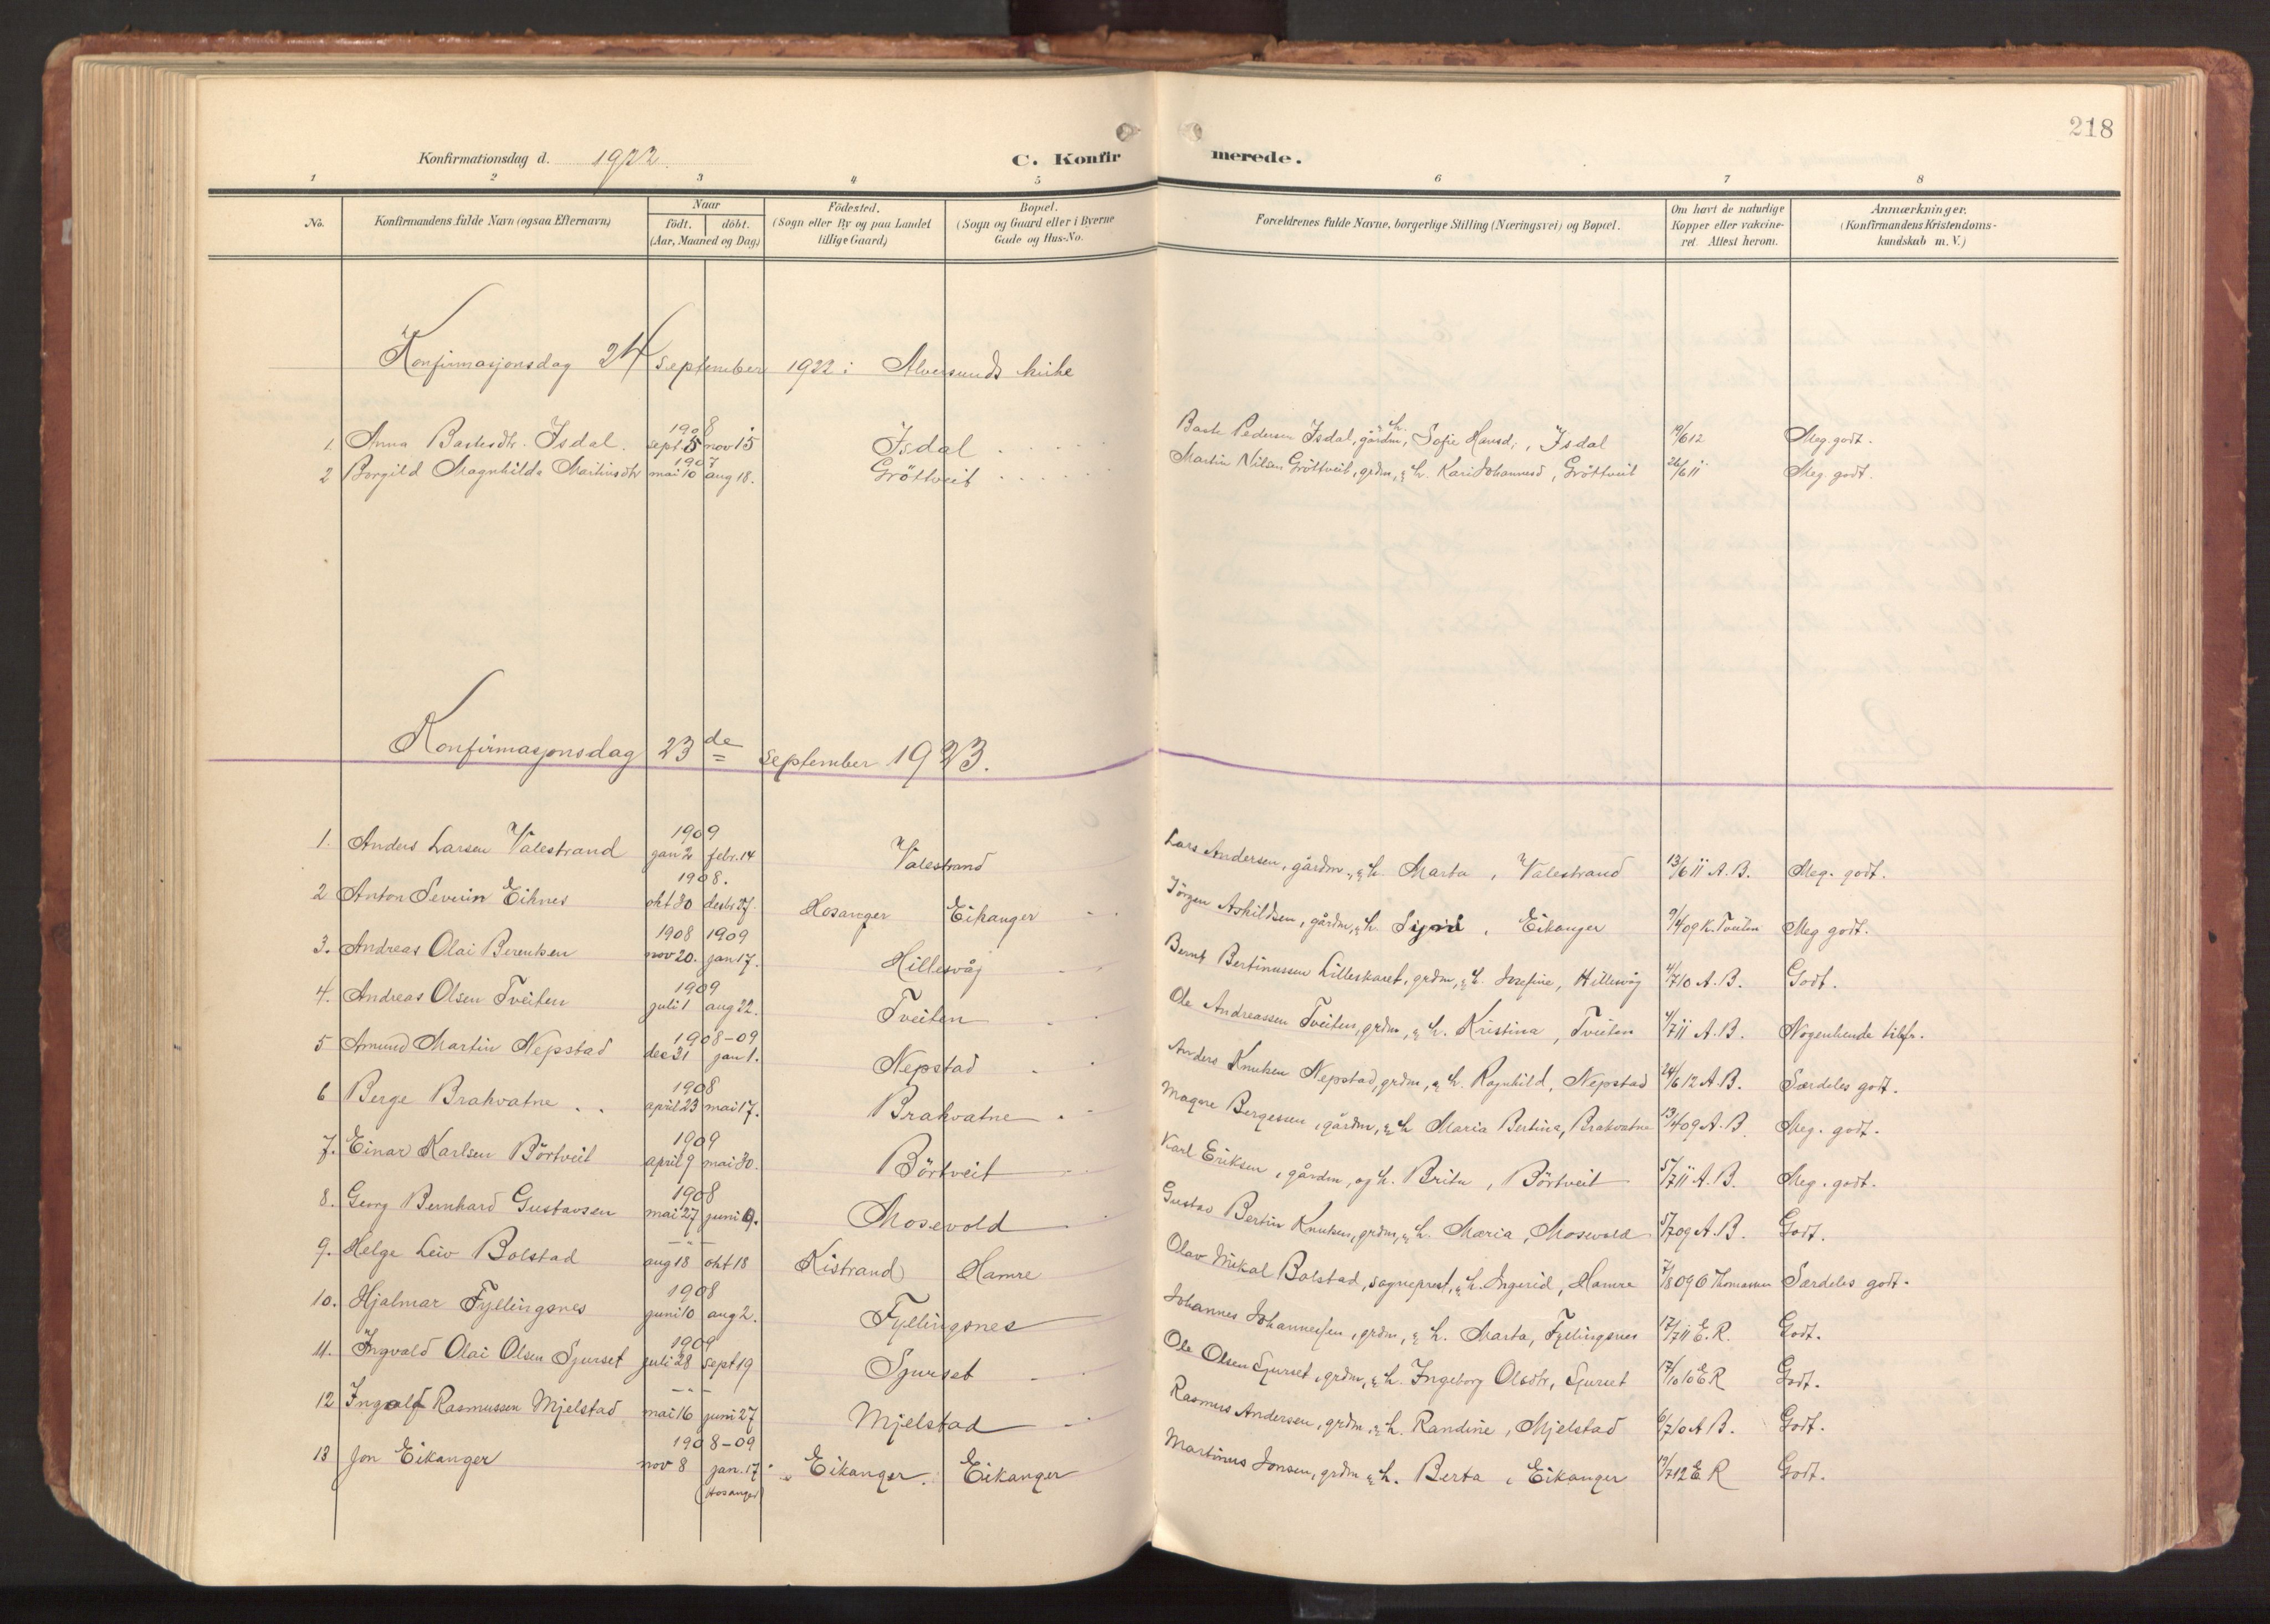 218
Konfirmationsdag d. 1922.
C. Konfirmerede.
1 2 3 4 5 6 7 8
No.
Konfirmandens fulde Navn (ogsaa Efternavn)
Naar
födt. döbt.
(Aar, Maaned og Dag)
Födested.
(Sogn eller By og paa Landet
tillige Gaard)
Bopæl.
(Sogn og Gaard eller i Byerne
Gade og Hus-No.
Forældrenes fulde Navne, borgerlige Stilling (Næringsvei) og Bopæl.
Om havt de naturlige
Kopper eller vakcine-
ret. Attest herom.
Anmærkninger.
(Konfirmandens Kristendoms-
kundskab m. V.)
Konfirmasjonsdag 24 september 1922 i Alversunds kirke
1908
1. Anna Basksdtr. Isdal. sept 5 nov 15 Isdal Bask Pedersen Isdal, gårdm, & h. Sofie Hansd., Isdal 19/6 12 Meg. godt.
1907
2 Borgild Magnhilda Martinsdtr mai 10 aug 18. Gröttveit Martin Nilsen Gröttveit, grdm, & h. Kari Johannesd, Gröttveit 26/6 11 Meg. godt.
Konfirmasjonsdag 23 de september 1923.
1909
1. Anders Larsen Valestrand jan 2 febr. 14 Valestrand Lars Andersen, gårdm., & h. Marta, Valestrand 13/6 11 A. B. Meg. godt.
1908.
2 Anton Severin Eiknes okt 30 desbr 27. Hosanger Eikanger Jörgen Askildsen, gårdm, & h. Sigrid, Eikanger 9/4 09 K. Tveiten Meg godt.
1908 1909
3. Andreas Olai Berentsen nov 20. jan 17. Hillesvåg Bernt Bertinussen Lilleskaret, grdm, & h. Josefine, Hillesvåg 4/7 10 A. B. Godt.
1909
4. Andreas Olsen Tveiten juli 1 aug 22. Tveiten Ole Andreassen Tveiten, grdm, & h. Kristina, Tveiten 4/7 11 A. B. Nogenlunde tilfr.
1908-09
5 Amund Martin Nepstad des 31 jan 1. Nepstad Anders Knutsen Nepstad, grdm, & h. Ragnhild, Nepstad 24/6 12 A. B. Særdeles godt.
1908
6 Berge Brakvatne april 23 mai 17. Brakvatne Magne Bergesen, gårdm, & h Maria Bertina, Brakvatne 13/4 09 A. B. Meg. godt.
1909
7. Einar Karlsen Börtveit april 9 mai 30. Börtveit Karl Eriksen, gårdm, og h. Brita, Börtveit 5/7 11 A. B. Meg. godt.
1908
8. Georg Bernhard Gustavsen mai 27 juni 9. Mosevold Gustav Bertin Knutsen, grdm, & h. Maria, Mosevold 5/7 09 A. B. Godt.
-"-
9. Helge Leiv Bolstad aug 18 okt 18 Kistrand Hamre Olav Mikal Bolstad, sogneprest, & h. Ingerid, Hamre 7/8 09 O Thomassen Særdeles godt.
1908
10. Hjalmar Fyllingsnes juni 10 aug 2. Fyllingsnes Johannes Johannessen, grdm, & h. Marta, Fyllingsnes 17/7 11 E. R. Godt.
1909
11. Ingvald Olai Olsen Sjurset juli 28 sept 19 Sjurset Ole Olsen Sjurset, grdm, & h. Ingeborg Olsdtr, Sjurset 17/10 10 E R Godt.
-"-
12 Ingolf Rasmussen Mjelstad mai 16 juni 27 Mjelstad Rasmus Andersen, grdm, & h. Randine, Mjelstad 6/7 10 A B. Godt.
1908-09
13 Jon Eikanger nov 8 jan. 17 Eikanger. Eikanger Martinus Jonsen, grdm & h. Berta, Eikanger 19/7 12 E R Godt.
(Hosanger)